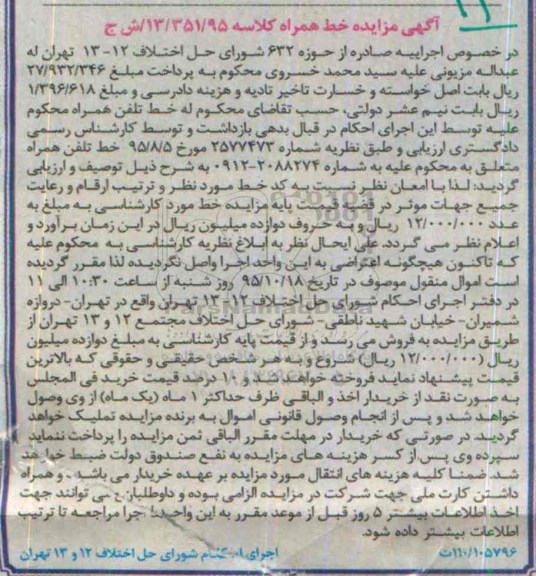 آگهی مزایده خط همراه کلاسه ۱۳/۳۵۱/۹۵/ش ج
در خصوص اجراییه صادره از حوزه ۶۳۲ شورای حل اختلاف ۱۲-۱۳ تهران له
عبداله مزیونی علیه سید محمد خسروی محکوم به پرداخت مبلغ ۲۷/۹۳۲/۳۴۶
ریال بابت اصل خواسته و خسارت تاخیر تادیه و هزینه دادرسی و مبلغ ۱/۳۹۶/۶۱۸
ریال بابت نیم عشر دولتی، حسب تقاضای محکوم له خط تلفن همراه محکوم
علیه توسط این اجرای احکام در قبال بدهی بازداشت و توسط کارشناس رسمی
دادگستری ارزیابی و طبق نظریه شماره ۲۵۷۷۴۷۳ مورخ ۹۵/۸/۵ خط تلفن همراه
متعلق به محکوم علیه به شماره ۲۰۸۸۲۷۴-۰۹۱۲ به شرح ذیل توصیف و ارزیابی
گردید: لذا با امعان نظر نسبت به کد خط مورد نظر و ترتیب ارقام و رعایت
جمیع جهات موثر در قضیه قیمت پایه مزایده خط مورد کارشناسی به مبلغ به
عدد ۱۲/۰۰۰/۰۰۰ ریال و به حروف دوازده میلیون ریال در این زمان برآورد و
اعلام نظر می گردد. علی ایحال نظر به ابلاغ نظریه کارشناسی به محکوم علیه
که تاکنون هیچگونه اعتراضی به این واحد اجرا واصل نگردیده لذا مقرر گردیده
است اموال منقول موصوف در تاریخ ۹۵/۱۰/۱۸ روز شنبه از ساعت ۱۰:۳۰ الی ۱۱
در دفتر اجرای احکام شورای حل اختلاف ۱۲-۱۳ تهران واقع در تهران- دروازه
شمیران- خیابان شهید ناطقی- شورای حل اختلاف مجتمع ۱۲ و ۱۳ تهران از
طریق مزایده به فروش می رسد و از قیمت پایه کارشناسی به مبلغ دوازده میلیون
ریال (۱۲/۰۰۰/۰۰۰ ریال) شروع و به هر شخص حقیقی و حقوقی که بالاترین
قیمت پیشنهاد نماید فروخته خواهد شد و ۱۰ درصد قیمت خرید فی المجلس
به صورت نقد از خریدار اخذ و الباقی ظرف حداکثر ۱ ماه (یک ماه) از وی وصول
خواهد شد و پس از انجام وصول قانونی اموال به برنده مزایده تملیک خواهد
گردید. در صورتی که خریدار در مهلت مقرر الباقی ثمن مزایده را پرداخت ننماید
سپرده وی پس از کسر هزینه های مزایده به نفع صندوق دولت ضبط خواهد
شد. ضمنا کلیه هزینه های انتقال مورد مزایده بر عهده خریدار می باشد و همراه
داشتن کارت ملی جهت شرکت در مزایده الزامی بوده و داوطلبان می توانند جهت
اخذ اطلاعات بیشتر ۵ روز قبل از موعد مقرر به این واحد اجرا مراجعه تا ترتیب
اطلاعات بیشتر داده شود.
۱۱۰/۱۰۵۷۹۶ت اجرای احکام شورای حل اختلاف ۱۲ و ۱۳ تهران